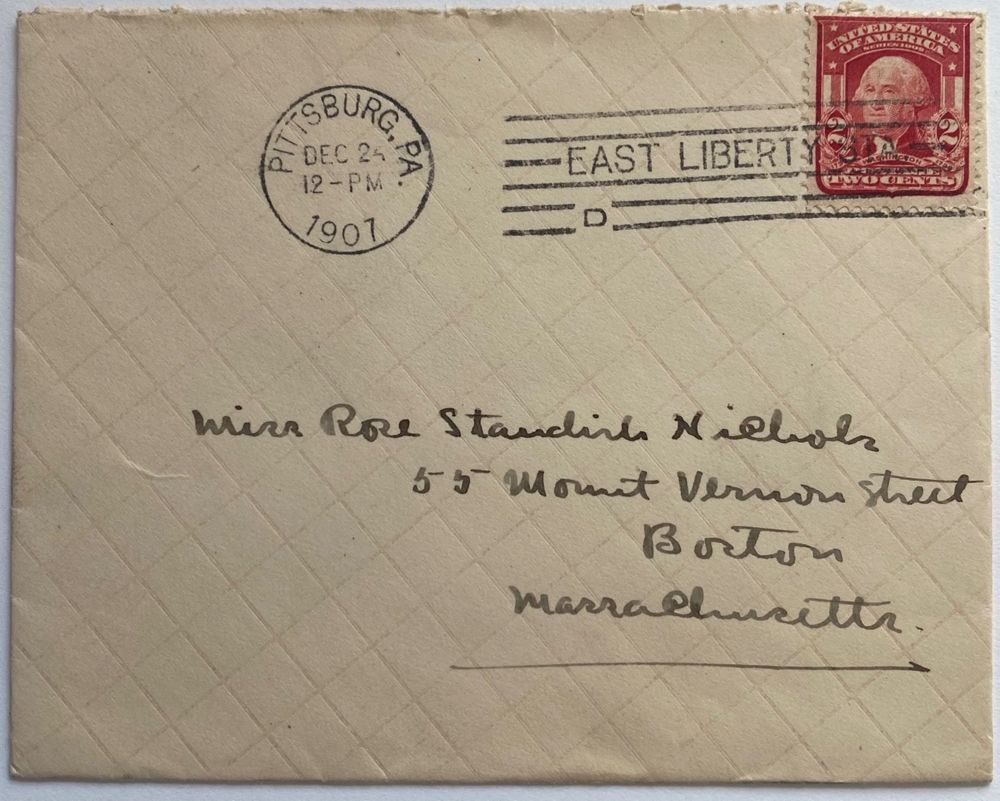 PITTSBURG, PA.
DEC 24
12-PM
1907
EAST LIBERTY STA
D
UNITED STATES
OF AMERICA
SERIES 1902
2 2
WASHINGTON
TWO CENTS
Miss Rose Standish Nichols
55 Mount Vernon Street
Boston
Massachusetts.